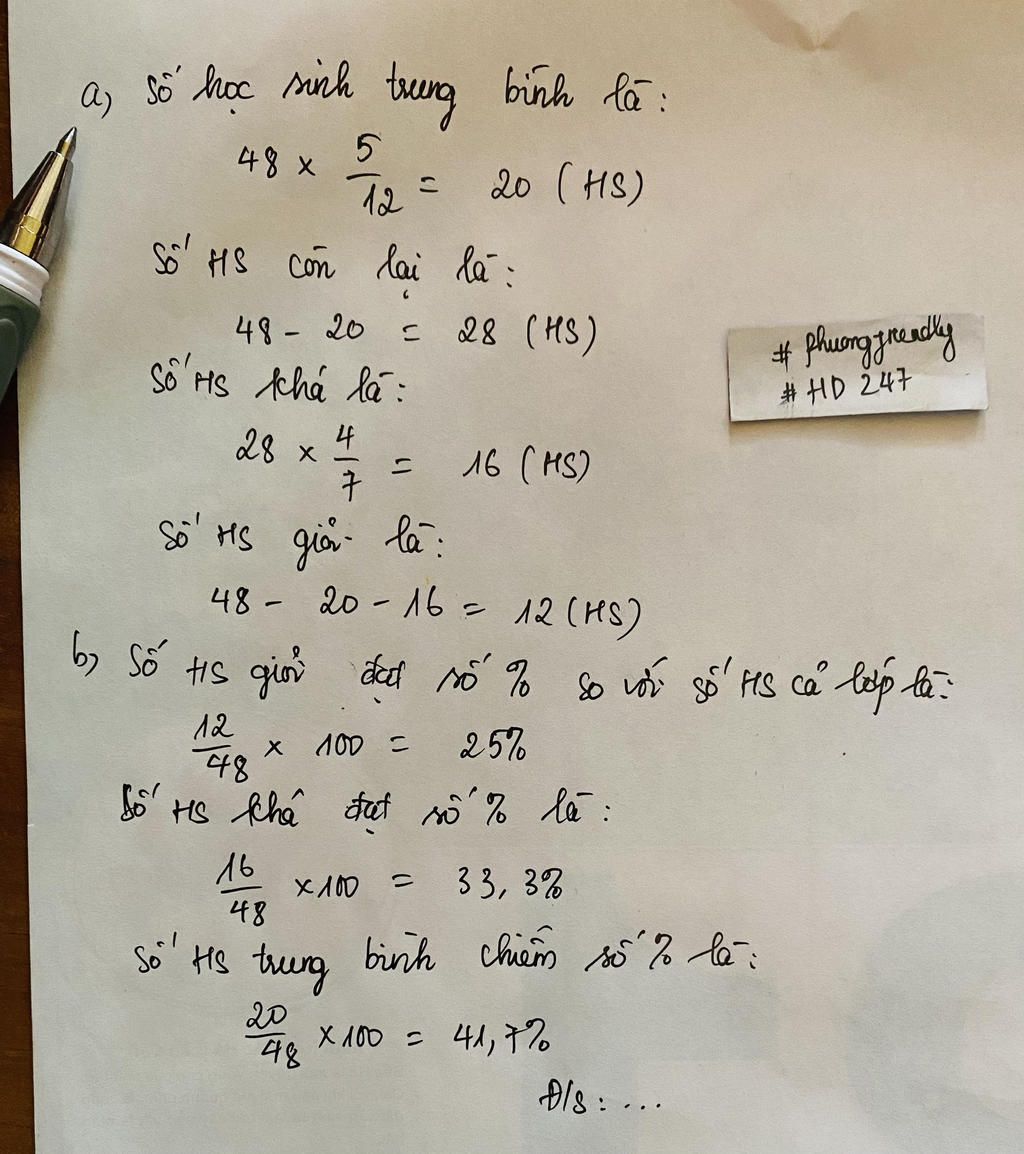 a) Số học sinh trung bình là:
48 × 5/12 = 20 (HS)
Số HS còn lại là:
48 - 20 = 28 (HS)
Số HS khá là:
28 × 4/7 = 16 (HS)
Số HS giỏi là:
48 - 20 - 16 = 12 (HS)
b) Số HS giỏi đạt số % so với số HS cả lớp là:
12/48 × 100 = 25%
Số HS khá đạt số % là:
16/48 × 100 = 33,3%
Số HS trung bình chiếm số % là:
20/48 × 100 = 41,7%
Đ/S: ...
# phuongfrendly
# HD 247